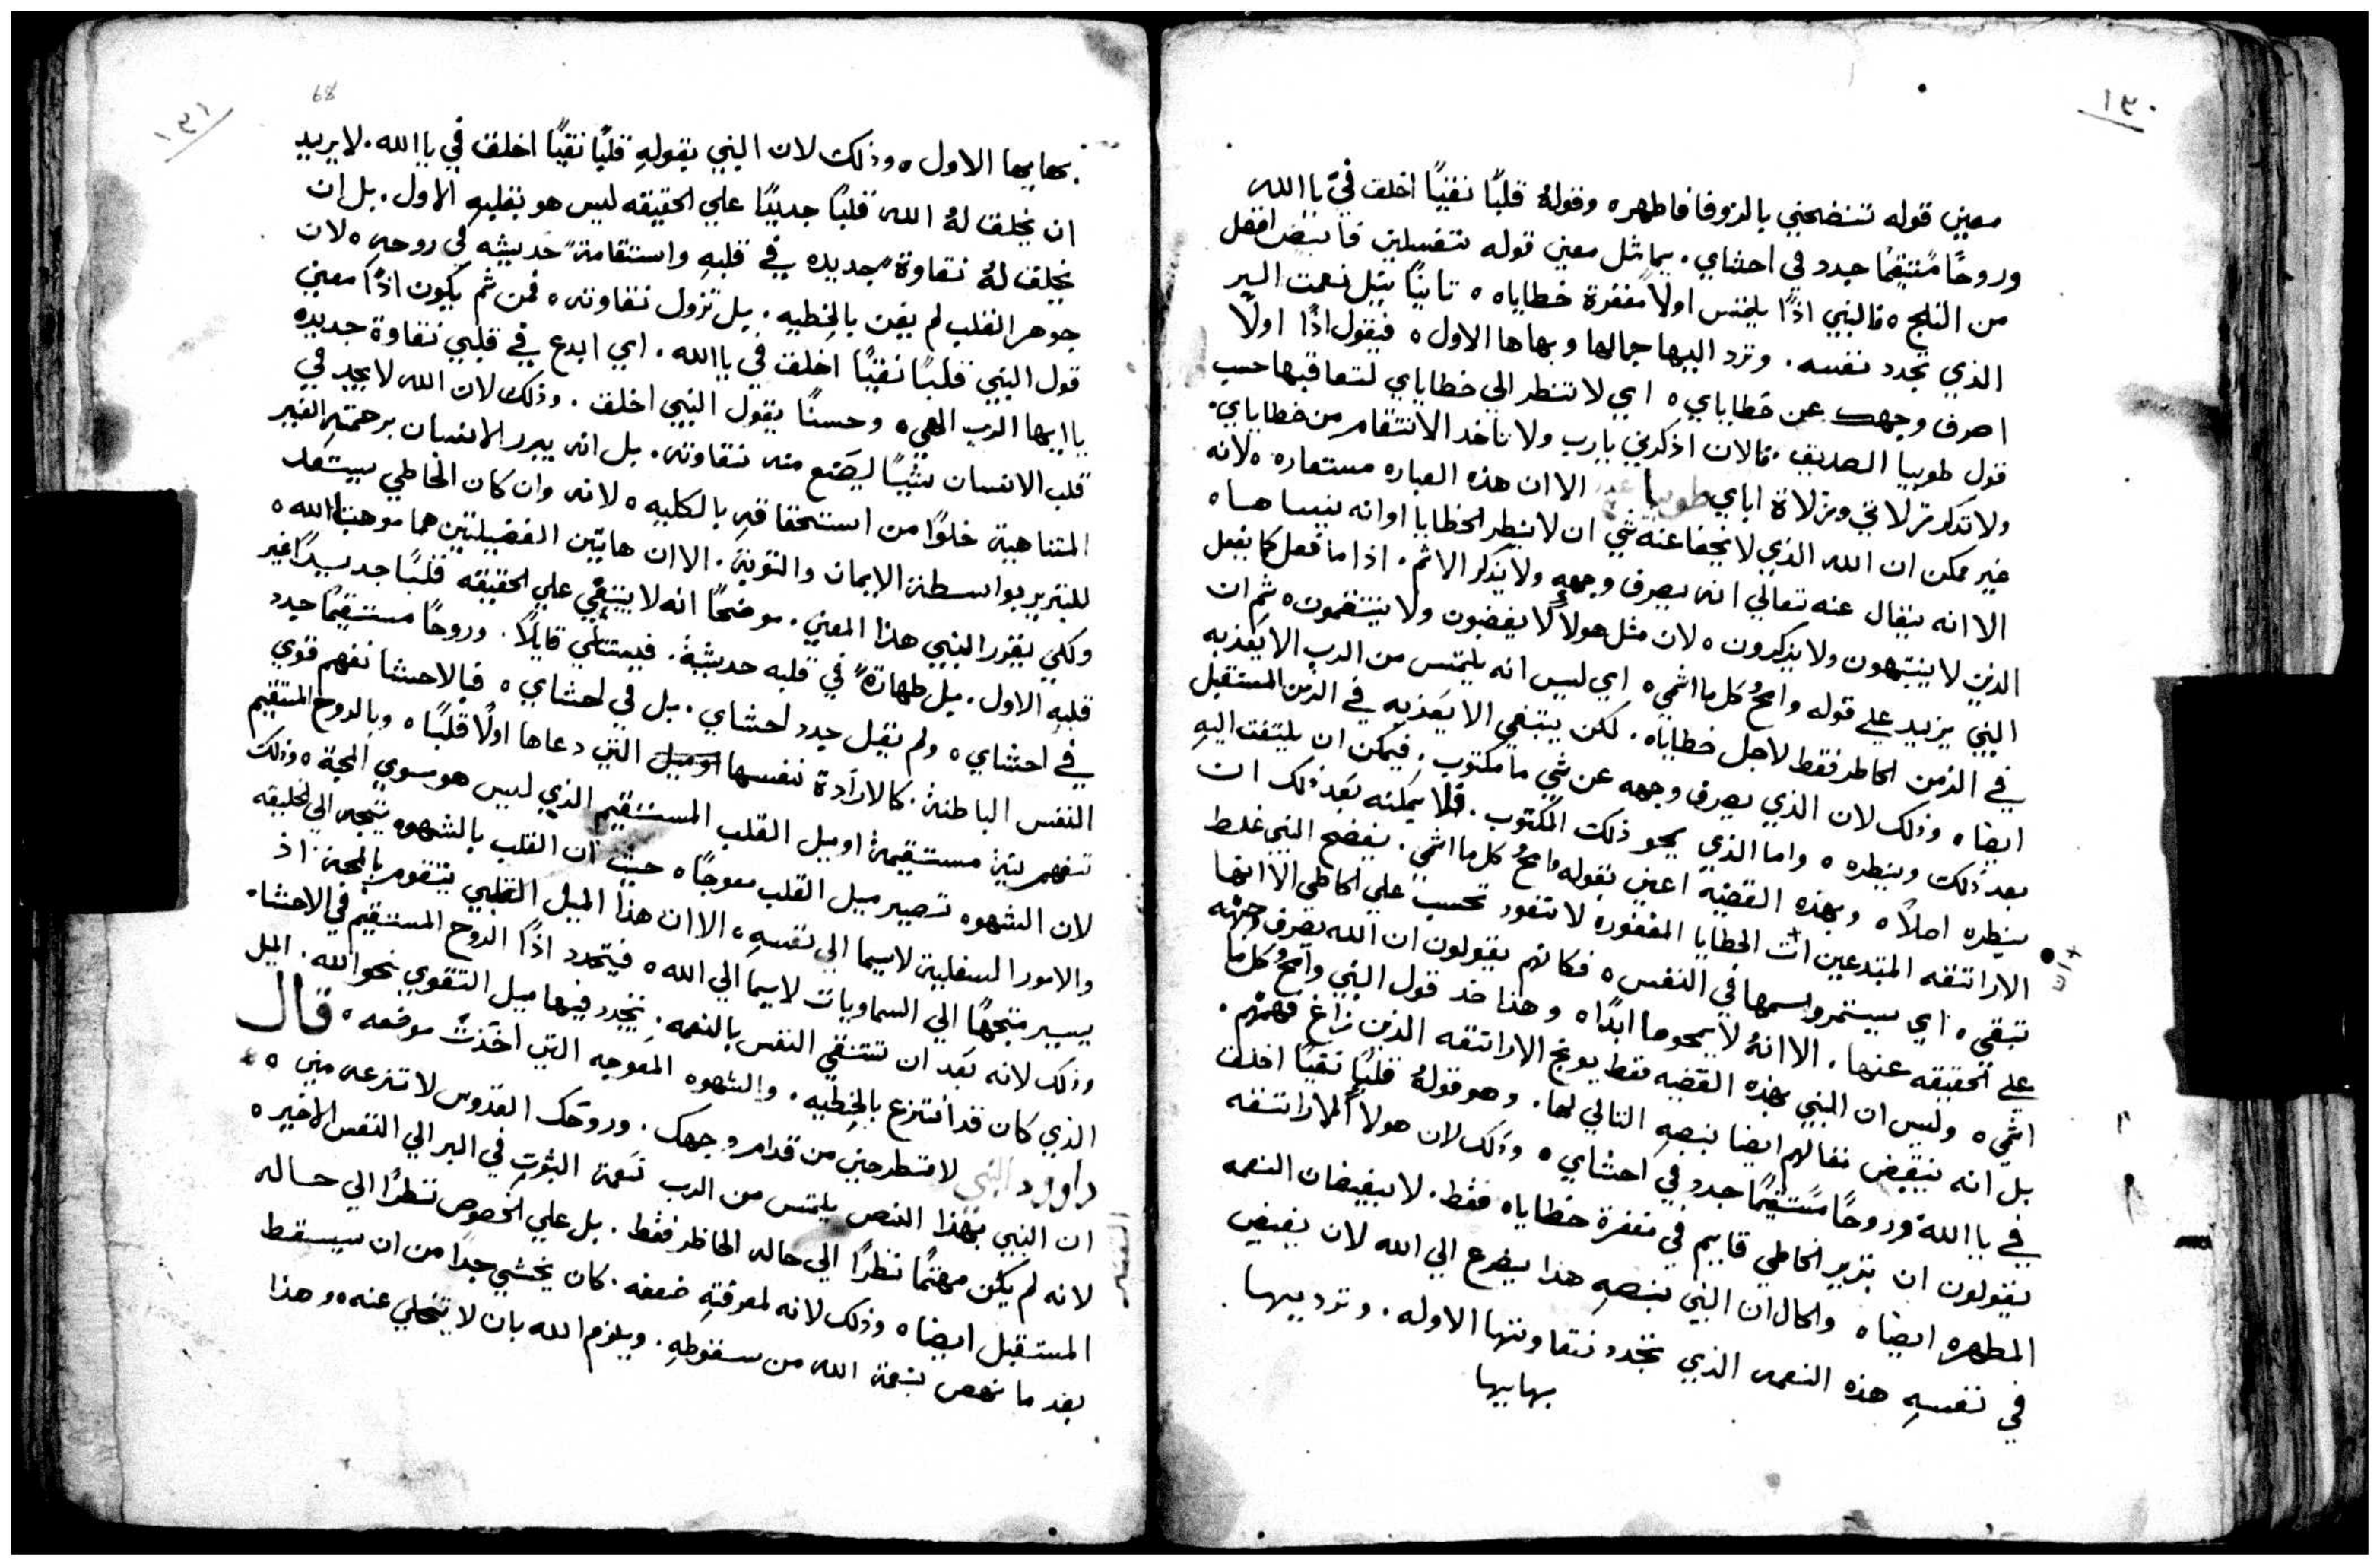 ١٣٠
معني قوله تنضحني بالزوفا فاطهر٥ وقولهُ قلبًا نقيًا اخلق فيَّ يا الله
وروحًا مُستقيمًا جدد في احشاي. يماثل معني قوله تغسلني فابيض افضل
من الثلج٥ فالنبي اذًا يلتمس اولاً مغفرة خطاياه٥ ثانيًا يتل نعمت البر
الذي تجدد نفسه. وترد اليها جمالها وبهاها الاول٥ فيقول اذًا اولاً
اصرف وجهك عن خطاياي٥ اي لا تنظر الي خطاياي لتعاقبها حسب
قول طوبيا الصديق. فالان اذكرني يا رب ولا تاخد الانتقام من خطاياي.
ولا تذكر زلاتي وزلاة اباي طوبيا الا ان هذه العباره مستعاره٥ لانه
غير ممكن ان الله الذي لا يخفا عنه شي ان لا ينظر الخطايا او انه ينساها٥
الا انه يقال عنه تعالي انه يصرف وجهه ولا يذكر الاثم. اذا ما فعل كما يفعل
الذين لا ينتبهون ولا يذكرون٥ لان مثل هولاً لا يغضبون ولا ينتقمون٥ ثم ان
النبي يزيد علي قوله وامحُ كل ما اثمي٥ اي ليس انه يلتمس من الرب الا يعذبه
في الزمن الحاظر فقط لاجل خطاياه. لكن يبتغي الا يعذبه في الزمن المستقبل
ايضا٥ وذلك لان الذي يصرف وجهه عن شي ما مكتوب. فيمكن ان يلتفت اليهِ
بعد ذلك وينظره٥ واما الذي يمحو ذلك المكتوب. فلا يمكنه بعد ذلك ان
ينظره اصلاً٥ وبهذه القضية اعني بقوله وامحُ كل ما اثمي. يفضح النبي غلط
الاراتقه المبتدعين ان الخطايا المغفوره لا تعود تحسب علي الخاطي الا انها
تبقي٥ اي يستمر واسمها في النفس٥ فكانهم يقولون ان الله يصرف وجهه
علي الحقيقه عنها. الا انهُ لا يمحوها ابدًا٥ وهذا ضد قول النبي وامحُ كل ما
اثمي٥ وليس ان النبي بهذه القضيه فقط يوبخ الاراتقه الذين زاغ فهمهم.
بل انه ينقض نفالهم ايضا بنصهِ التالي لها. وهو قولهُ قلبًا نقيًا اخلق
فيَّ يا اللهُ وروحًا مُستقيمًا جدد في احشاي٥ وذلك لان هولاً الاراتقه
يقولون ان تبرير الخاطي قايم في مغفرة خطاياه فقط. لا بفيضان النعمه
المطهره ايضا٥ والحال ان النبي بنصهِ هذا يضرع الي الله لان يفيض
في نفسهِ هذه النعمه الذي تجدد نقاوتها الاوله. وترد بيها
بهابيها
١٣١
68
بهابيها الاول٥ وذلك لان النبي بقولهِ قلبًا نقيًا اخلق فيَّ يا الله. لا يريد
ان يخلق لهُ الله قلبًا جديدًا علي الحقيقه ليس هو بقلبهِ الاول. بل ان
يخلق لهُ نقاوةً جديده في قلبهِ واستقامةً حديثه في روحه٥ لان
جوهر القلب لم يفن بالخطيه. بل تزول نقاوته٥ فمن ثم يكون اذًا معني
قول النبي قلبًا نقيًا اخلق فيَّ يا الله. اي ابدع في قلبي نقاوة جديده
يا ايها الرب الهي٥ وحسنًا يقول النبي اخلق. وذلك لان الله لا يجد في
قلب الانسان شيًا ليصنع منه نقاوته. بل انه يبرر الانسان برحمته الغير
المتناهية خلوًا من استحقاقهِ بالكليه٥ لانه وان كان الخاطي يستعد
للتبرير بواسطة الايمان والتوبة. الا ان هاتين الفضيلتين هما موهبة الله٥
ولكي يقرر النبي هذا المعني. موضحًا انه لا يبتغي علي الحقيقه قلبًا جديدًا غير
قلبهِ الاول. بل طهارةً في قلبه حديثة. فيستتلي قايلاً. وروحًا مستقيمًا جدد
في احشاي٥ ولم يقل جدد احشاي. بل في احشاي٥ فبالاحشا نفهم قوي
النفس الباطنة. كالارادة نفسها التي دعاها اولًا قلبًا٥ وبالروح المستقيم
نفهم نية مستقيمة او ميل القلب المستقيم الذي ليس هو سوي المحبة٥ وذلك
لان الشهوه تصير ميل القلب معوجًا٥ حيث ان القلب بالشهوه يتجه الي الخليقه
والامور السفليه لاسيما الي نفسهِ٥ الا ان هذا الميل القلبي يتقوم بالمحبة اذ
يسير متجهًا الي السماويات لاسيما الي الله٥ فيتجدد اذًا الروح المستقيم في الاحشا٥
وذلك لانه بعد ان تتنقي النفس بالنعمه. يتجدد فيها ميل التقوي نحو الله. الميل
الذي كان قد انتزع بالخطيه. والشهوه المعوجه التي اخذت موضعه٥ قال
داوود النبي لا تطرحني من قدام وجهك. وروحك القدوس لا تنزعه مني٥
ان النبي بهذا النص يلتمس من الرب نعمة الثبوت في البر الي النفس الاخير٥
لانه لم يكن مهتمًا نظرًا الي حاله الحاظر فقط. بل علي الخصوص نظرًا الي حاله
المستقبل ايضا٥ وذلك لانه لمعرفتهِ ضعفه. كان يخشي جدًا من ان يسقط
بعد ما نهض بنعمة الله من سقوطهِ. ويلزم الله بان لا يتخلي عنه٥ وهذا
التفسير